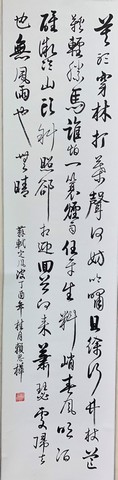 莫聽穿林打葉聲何妨吟嘯且徐行竹杖芒
鞋輕勝馬誰怕一蓑煙雨任平生料峭春風吹酒
醒微冷山頭斜照卻相迎回首向來蕭瑟處歸去
也無風雨也無晴
蘇軾定風波丁酉年桂月賴思樺